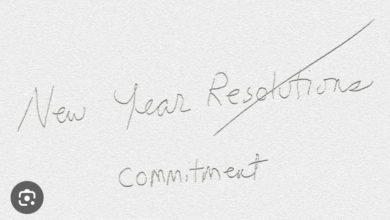 New Year Resolutions
commitment